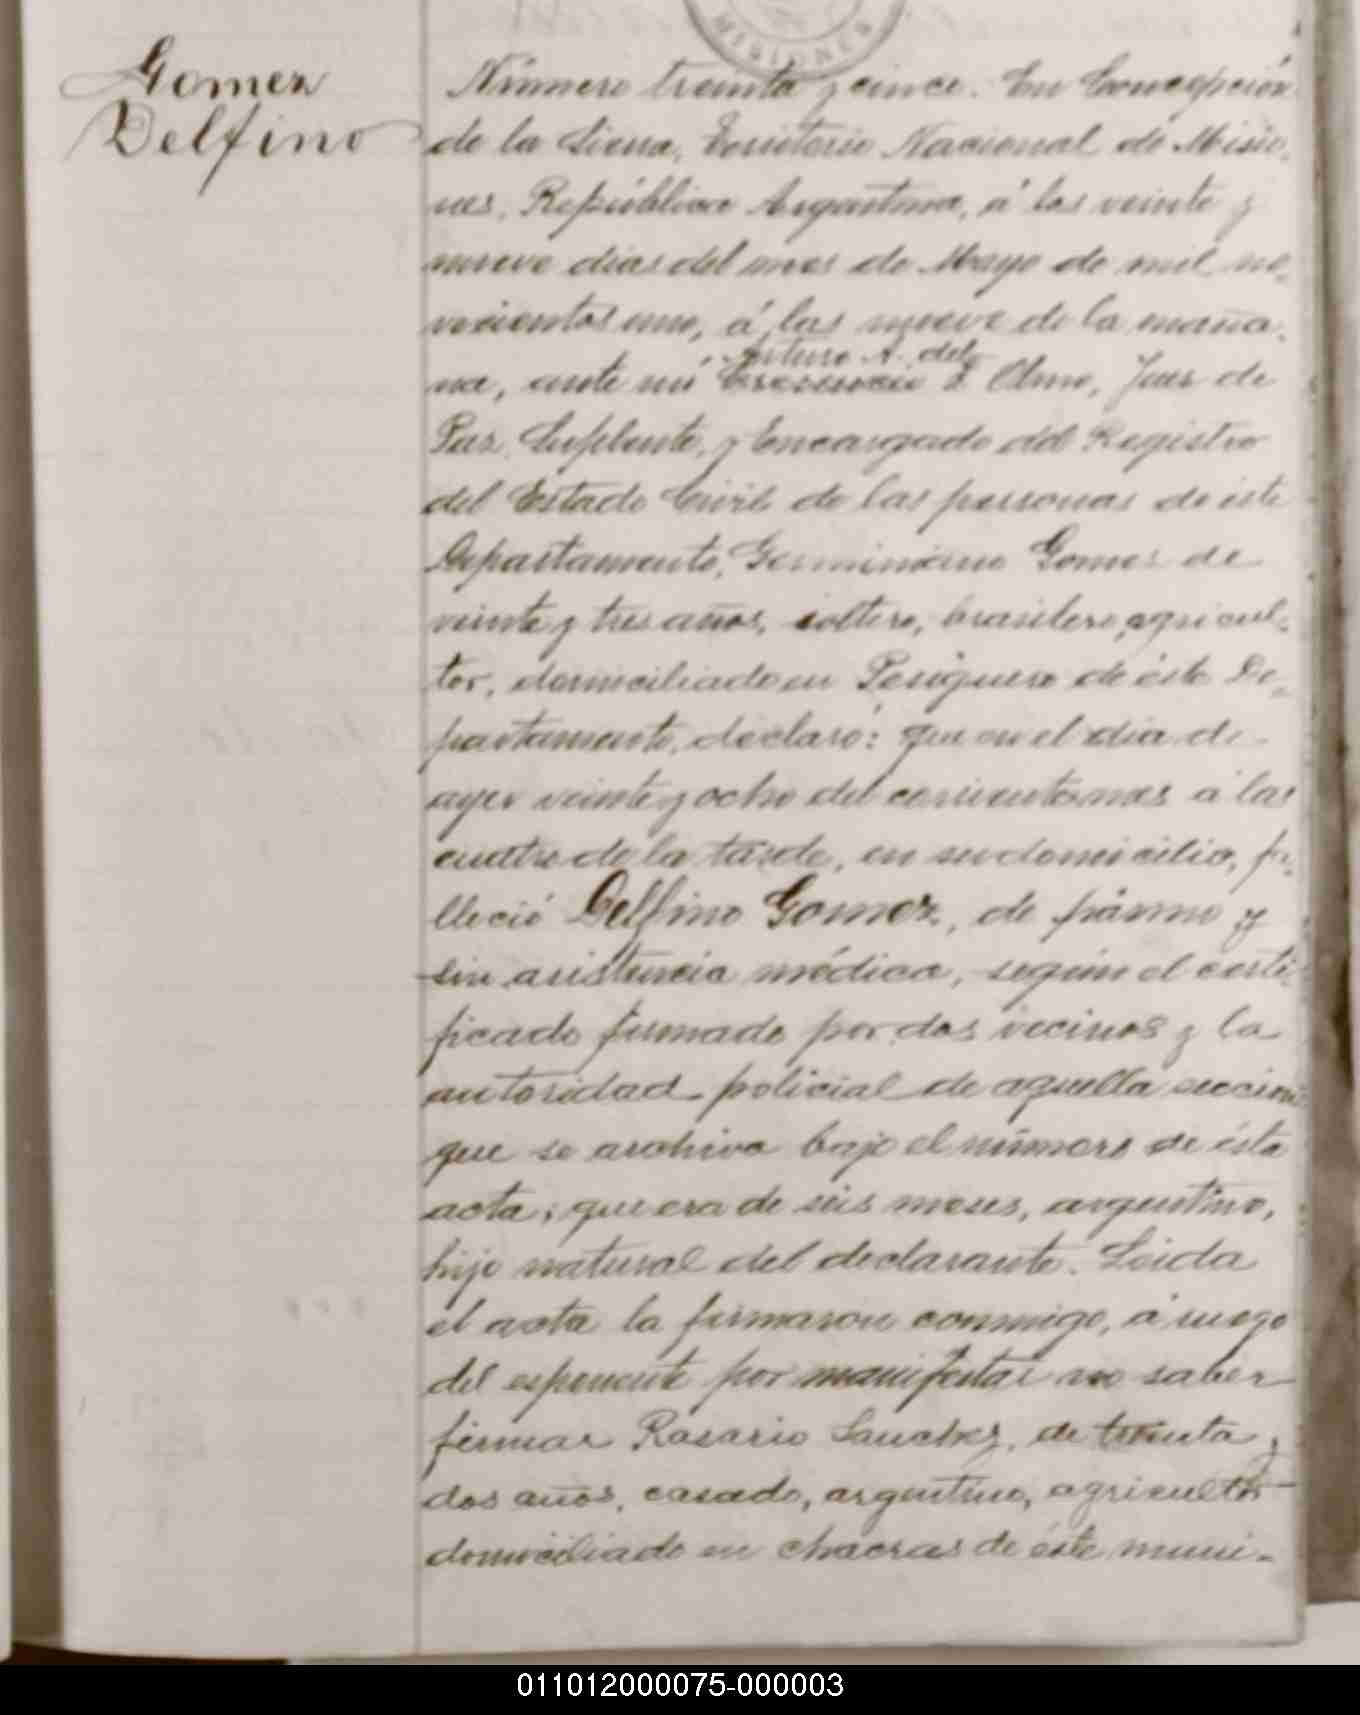 MISIONES
Gomez
Delfino
Número treinta y cinco. En Concepción
de la Sierra, Territorio Nacional de Misio-
nes, República Argentina, á los veinte y
nueve dias del mes de Mayo de mil no-
vecientos uno, á las nueve de la maña-
Arturo A. del
na, ante mi Olmo, Juez de
Paz Suplente, y Encargado del Registro
del Estado Civil de las personas de éste
Departamento, Germiniano Gomez de
veinte y tres años, soltero, brasilero, agricul-
tor, domiciliado en de éste De-
partamento, declaró: que en el dia de
ayer veinte y ocho del corriente mes á las
cuatro de la tarde, en su domicilio, fa-
lleció Delfino Gomez, de y
sin asistencia médica, según el certi-
ficado firmado por dos vecinos y la
autoridad policial de aquella seccion
que se archiva bajo el número de ésta
acta; que era de seis meses, argentino,
hijo natural del declarante. Leida
el acta la firmaron conmigo, á ruego
del esponente por manifestar no saber
firmar Rosario Sanchez, de treinta y
dos años, casado, argentino, agricultor
domiciliado en chacras de éste muni-
011012000075-000003